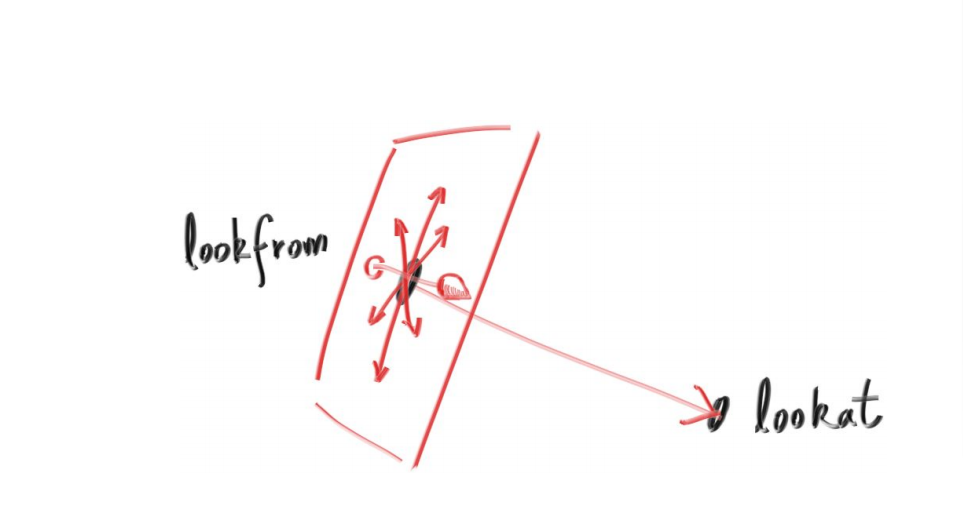 lookfrom
lookat